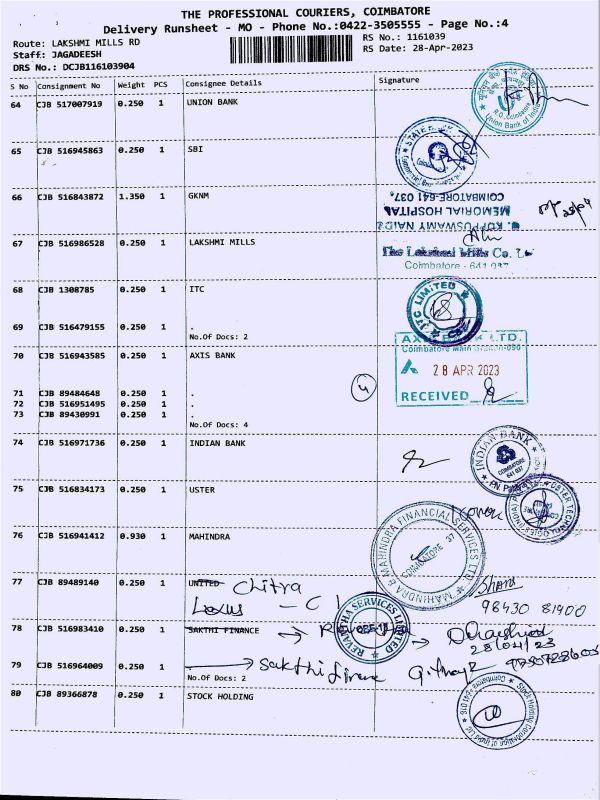 THE PROFESSIONAL COURIERS, COIMBATORE
Delivery Runsheet - MO - Phone No.:0422-3505555 - Page No.:4
Route: LAKSHMI MILLS RD
Staff: JAGADEESH
DRS No.: DCJB116103904
RS No.: 1161039
RS Date: 28-Apr-2023
S No Consignment No Weight PCS Consignee Details Signature
64 CJB 517007919 0.250 1 UNION BANK
R.O. Coimbatore
Union Bank of India
65 CJB 516945863 0.250 1 SBI
66 CJB 516843872 1.350 1 GKNM
COIMBATORE-641 037.
MEMORIAL HOSPITAL
KUPPUSWAMY NAIDU
67 CJB 516986528 0.250 1 LAKSHMI MILLS
The Lakshmi Mills Co. L
Coimbatore - 641 037
68 CJB 1308785 0.250 1 ITC
ITC LIMITED
69 CJB 516479155 0.250 1 .
No.Of Docs: 2
70 CJB 516943585 0.250 1 AXIS BANK
LTD.
Coimbatore Main
28 APR 2023
RECEIVED
71 CJB 89484648 0.250 1 .
72 CJB 516951495 0.250 1 .
73 CJB 89430991 0.250 1 .
No.Of Docs: 4
4
74 CJB 516971736 0.250 1 INDIAN BANK
INDIAN BANK
COIMBATORE
641 037
75 CJB 516834173 0.250 1 USTER
76 CJB 516941412 0.930 1 MAHINDRA
MAHINDRA & MAHINDRA FINANCIAL SERVICES LTD
COIMBATORE
77 CJB 89489140 0.250 1 UNITED Chitra
Lexus - C
98430 81900
78 CJB 516983410 0.250 1 SAKTHI FINANCE
REVATHA SERVICES LIMITED
28/04/23
79 CJB 516964009 0.250 1 Sakthi finance
No.Of Docs: 2
80 CJB 89366878 0.250 1 STOCK HOLDING
Stock Holding Corporation of India Ltd